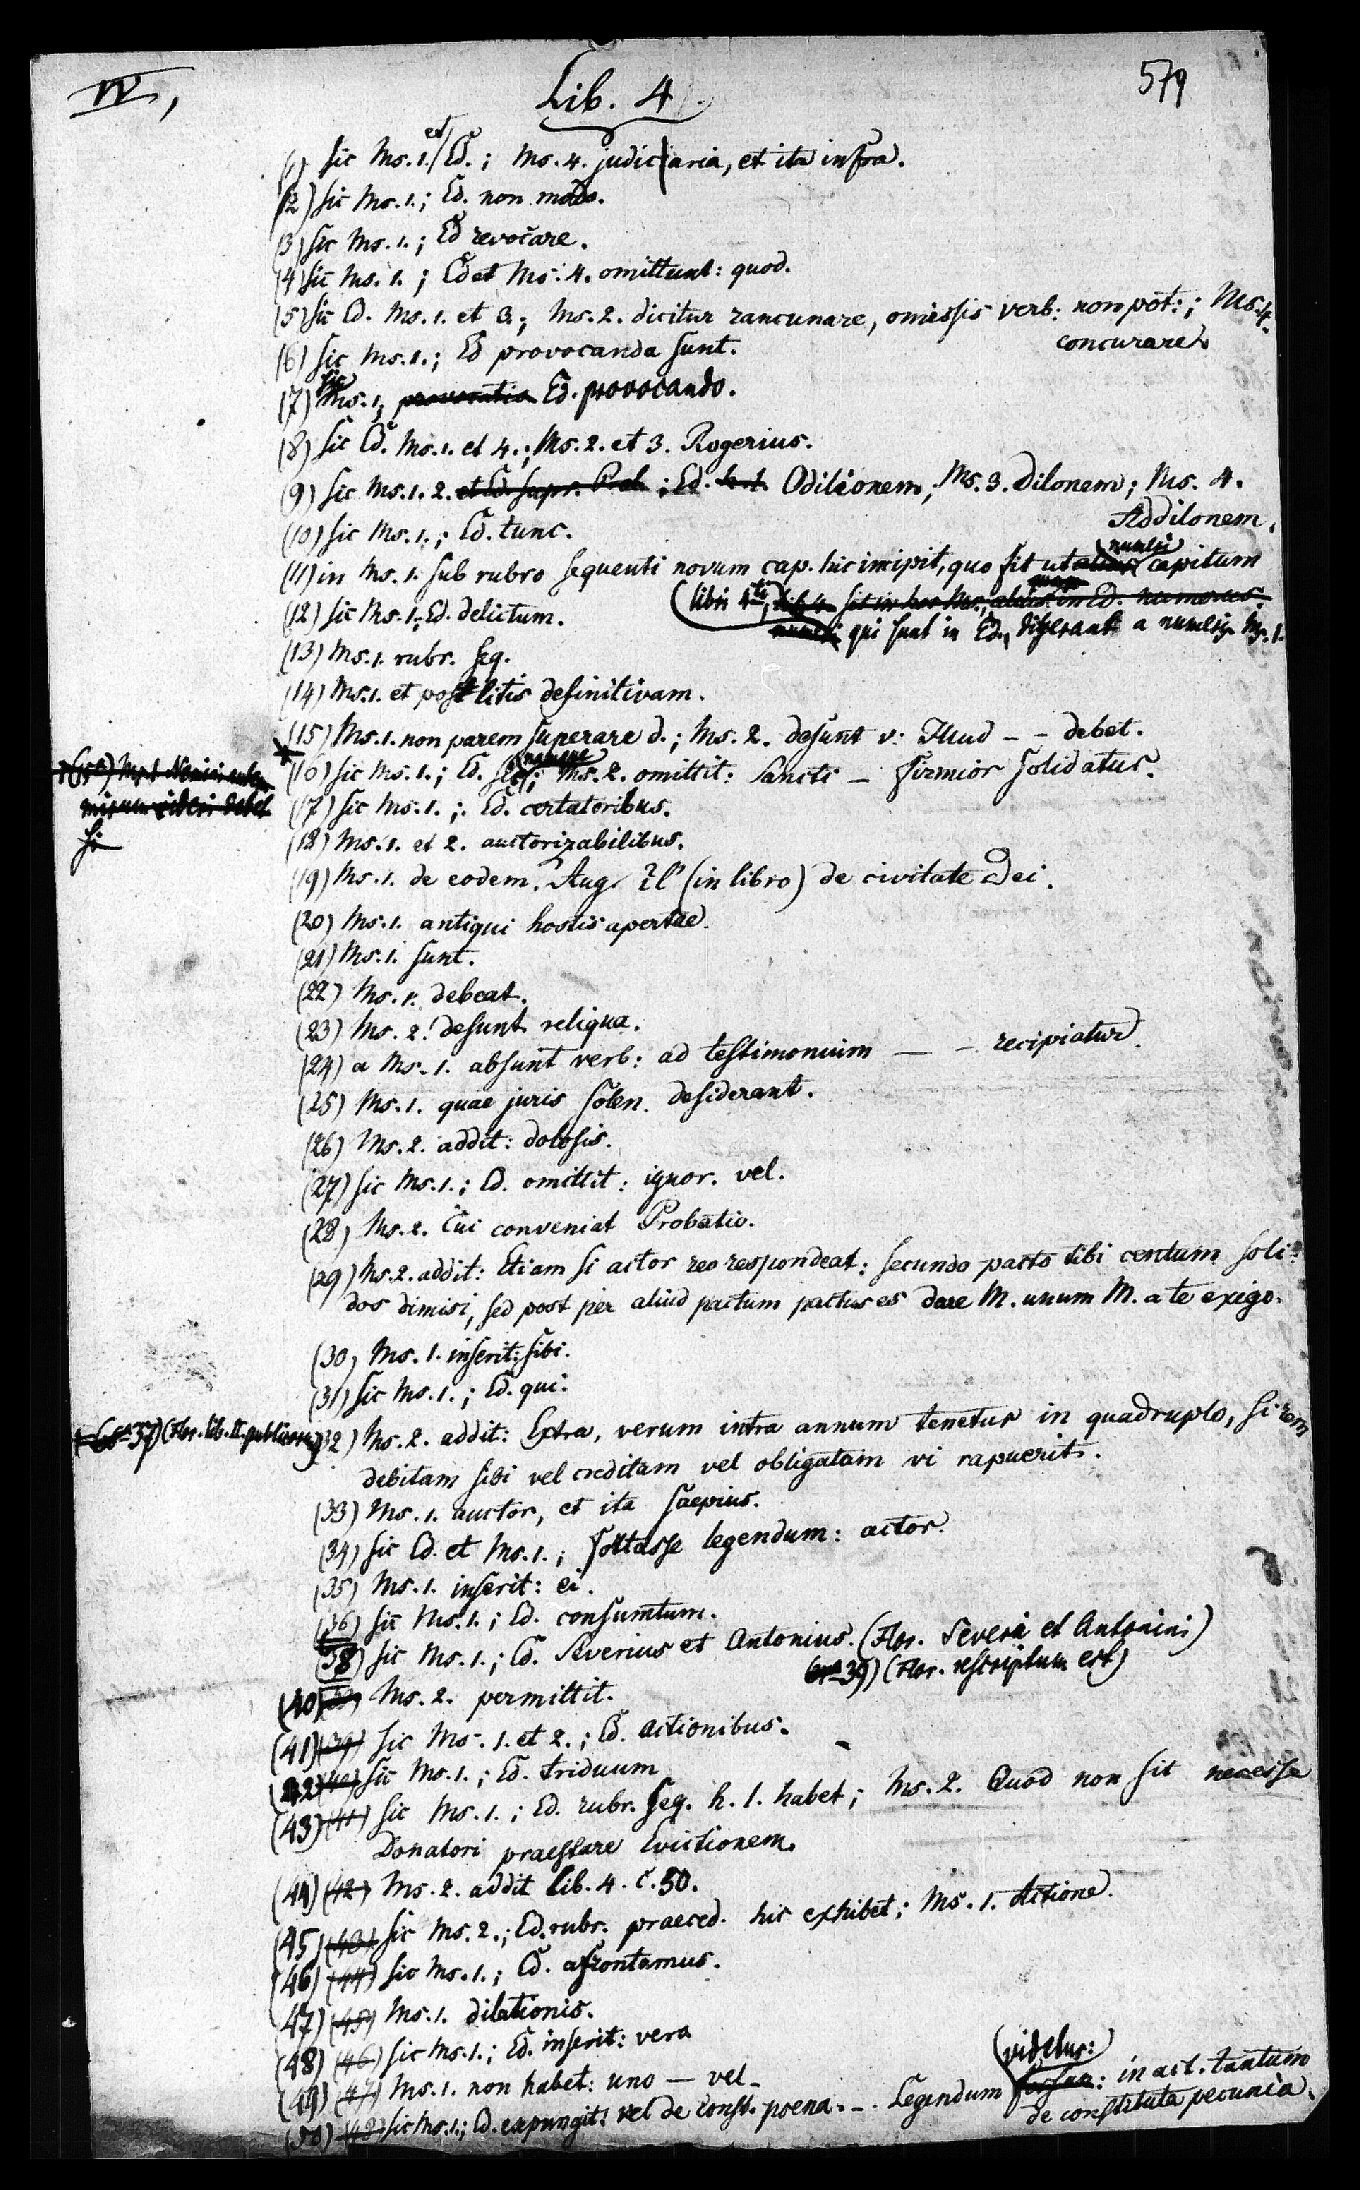 IV,
Lib. 4.
579
(1) sic Ms. 1. et Ed.; Ms. 4. judiciaria, et ita infra.
(2) sic Ms. 1.; Ed. non modo.
(3) sic Ms. 1.; Ed revocare.
(4) sic Ms. 1.; Ed et Ms. 4. omittunt: quod.
(5) sic Ed. Ms. 1. et 3.; Ms. 2. dicitur rancunare, omissis verb: non pot:; Ms. 4.
concurare.
(6) sic Ms. 1.; Ed provocanda sunt.
(7) sic Ms. 1, provocatio Ed. provocando.
(8) sic Ed. Ms. 1. et 4.; Ms. 2. et 3. Rogerius.
(9) sic Ms. 1. 2. et Ed. supr. ; Ed. h. l. Odilionem, Ms. 3. Dilonem; Ms. 4.
Addilonem.
(10) sic Ms. 1.; Ed. tunc.
(11) in Ms. 1. sub rubro sequenti novum cap. hic incipit, quo fit ut numeri capitum
(libri 4ti, lib. 4. sit in hoc Ms. alius quam in Ed. numerus.
qui sunt in Ed., differant a numeris Ms. 1.
(12) sic Ms. 1.; Ed. delictum.
(13) Ms. 1. rubr. seq.
(14) Ms. 1. et post litis definitivam.
(15) Ms. 1. non parem superare d.; Ms. 2. desunt v: Illud - - debet.
(16) sic Ms. 1.; Ed. ; Ms. 2. omittit: Sancti - firmior solidatus.
Ms. 1
mirum videri debet
si
(17) sic Ms. 1.; Ed. certatoribus.
(18) Ms. 1. et 2. auctorizabilibus.
(19) Ms. 1. de eodem. Aug. (in libro) de civitate Dei.
(20) Ms. 1. antiqui hostis apertae.
(21) Ms. 1. sunt.
(22) Ms. 1. debeat.
(23) Ms. 2. desunt reliqua.
(24) a Ms. 1. absunt verb: ad testimonium — - recipiatur.
(25) Ms. 1. quae juris solen. desiderant.
(26) Ms. 2. addit: dolosis.
(27) sic Ms. 1.; Ed. omittit: ignor. vel.
(28) Ms. 2. Cui conveniat Probatio.
(29) Ms. 2. addit: Etiam si actor reo respondeat: secundo pacto tibi centum soli-
dos dimisi, sed post per aliud pactum pactus es dare M. unum M. a te exigo.
(30) Ms. 1. inserit: sibi.
(31) sic Ms. 1.; Ed. qui.
37) (Flor. lib. II. publicorum)
(32) Ms. 2. addit: Extra, verum intra annum tenetur in quadruplo, si rem
debitam sibi vel creditam vel obligatam vi rapuerit.
(33) Ms. 1. auctor, et ita saepius.
(34) sic Ed. et Ms. 1.; fortasse legendum: actor.
(35) Ms. 1. inserit: ei.
(36) sic Ms. 1.; Ed. consumtum.
(38) sic Ms. 1.; Ed. Severius et Antonius. (Flor. Severi et Antonini)
39) (Flor. rescriptum est)
(40) Ms. 2. permittit.
(41) (39) sic Ms. 1. et 2.; Ed. actionibus.
(42) (40) sic Ms. 1.; Ed. triduum
(43) (41) sic Ms. 1.; Ed. rubr. seq. h. l. habet; Ms. 2. Quod non sit necesse
Donatori praestare Evictionem.
(44) (42) Ms. 2. addit Lib. 4. c. 50.
(45) (43) sic Ms. 2.; Ed. rubr. praeced. hic exhibet; Ms. 1. Actione.
(46) (44) sic Ms. 1.; Ed. afrontamus.
(47) (45) Ms. 1. dilationis.
(48) (46) sic Ms. 1.; Ed. inserit: vera
(49) (47) Ms. 1. non habet: uno — vel-
(50) (48) sic Ms. 1.; Ed. expungit: vel de const. poena. -. Legendum (videtur:) forsan: in act. tantum
de constituta pecunia.